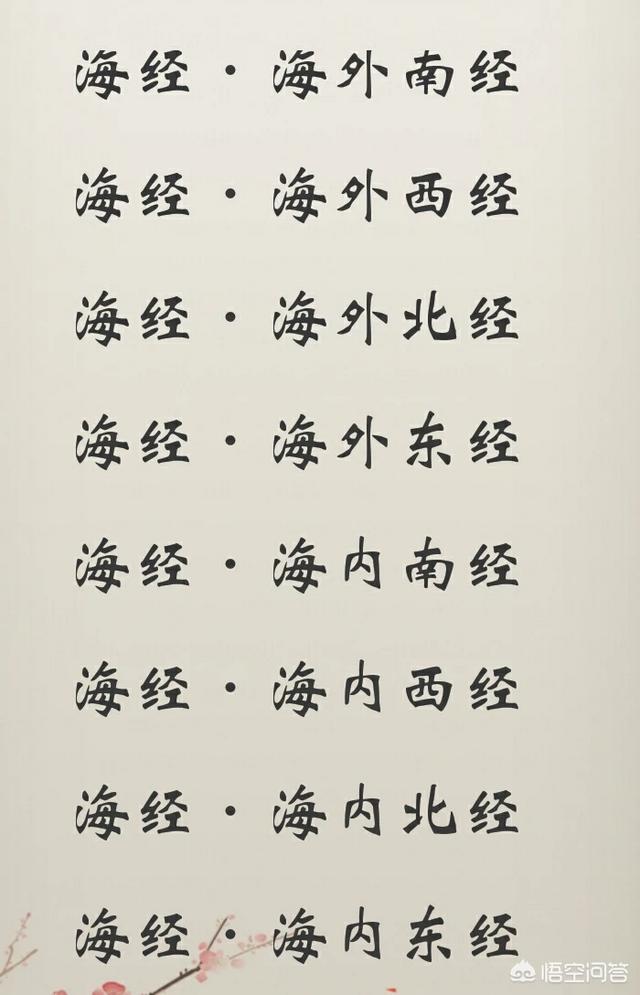 海经·海外南经
海经·海外西经
海经·海外北经
海经·海外东经
海经·海内南经
海经·海内西经
海经·海内北经
海经·海内东经
悟空问答